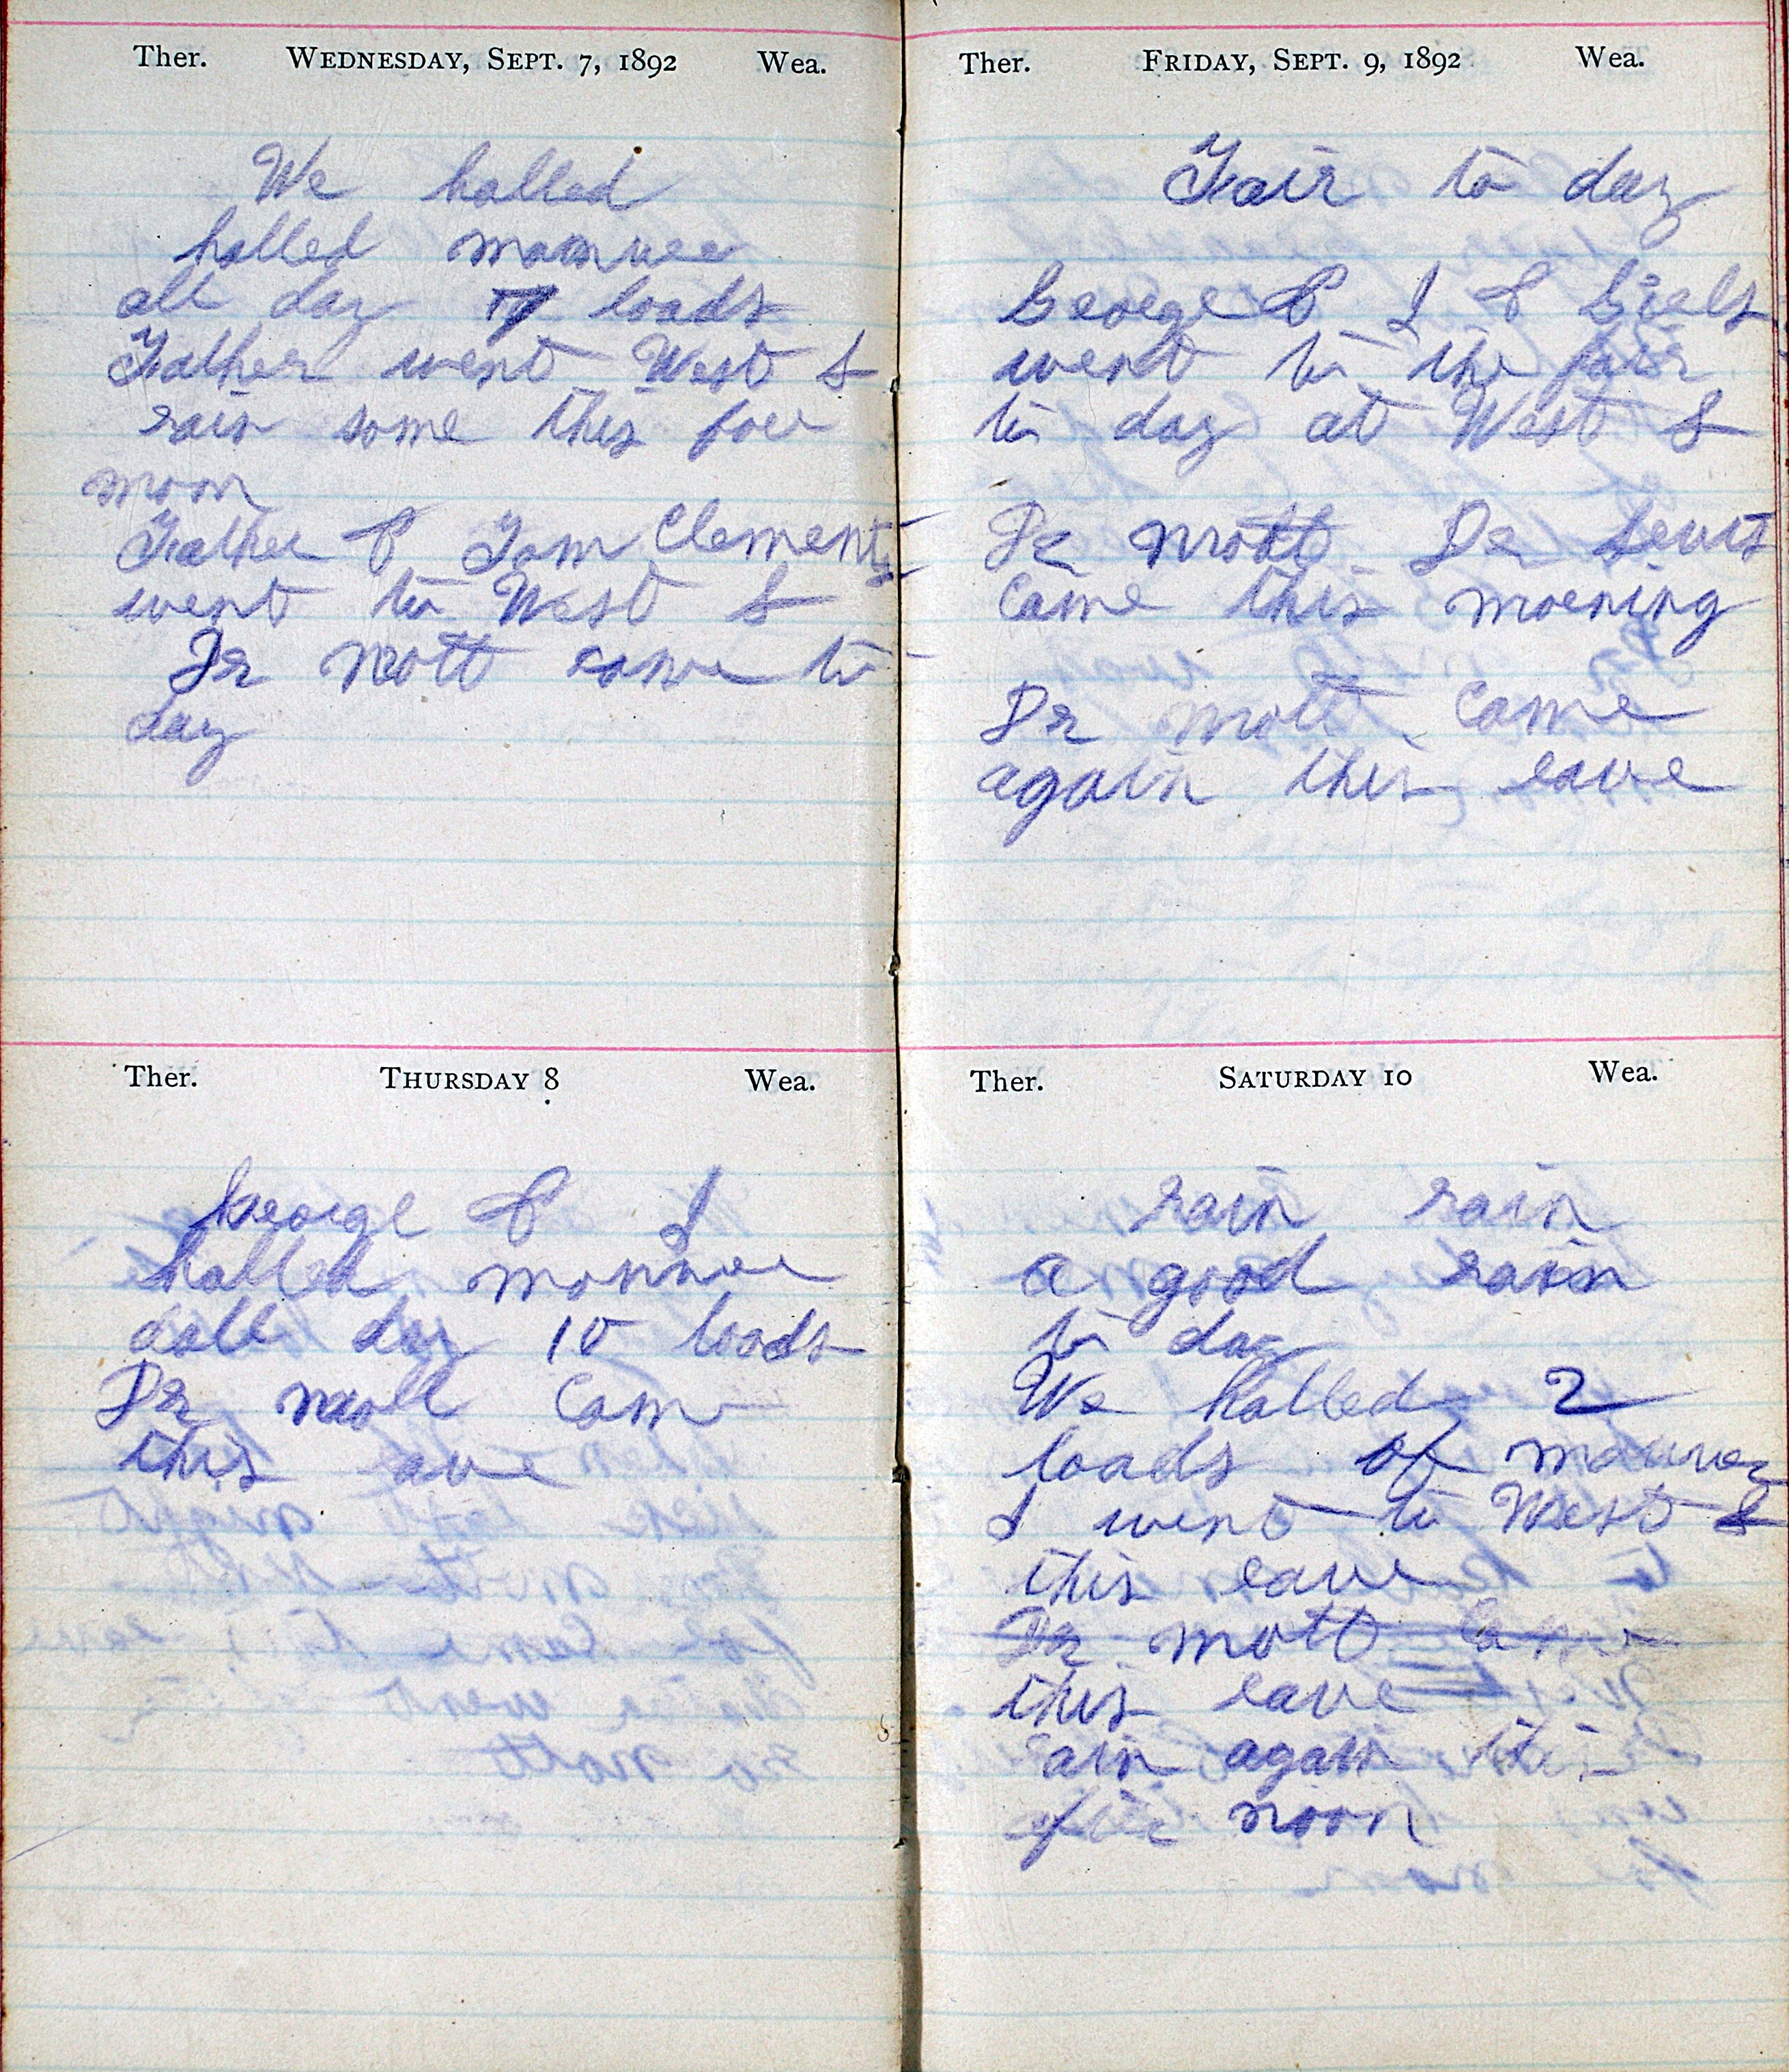 Ther. WEDNESDAY, SEPT. 7, 1892 Wea.
We halled
halled manure
all day 17 loads
Father went West S
rain some this fore
noon
Father & Tom Clements
went to West S
Dr Mott came to
day
Ther. THURSDAY 8 Wea.
George & I
halled manure
all day 10 loads
Dr Mott Came
this eave
Ther. FRIDAY, SEPT. 9, 1892 Wea.
Fair to day
George & I & Girls
went to the fair
to day at West S
Dr Mott Dr
Came this morning
Dr Mott Came
again this eave
Ther. SATURDAY 10 Wea.
rain rain
a good rain
to day
We halled 2
loads of manure
I went to West S
this eave
Dr Mott Came
this eave
rain again this
after noon